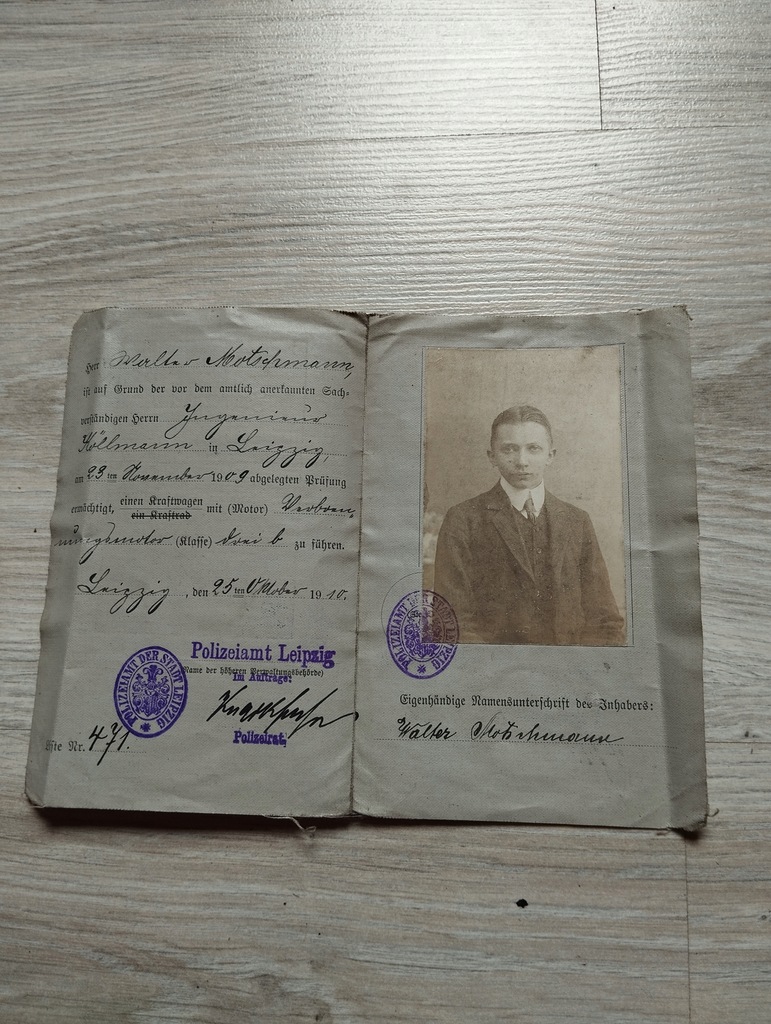 Herr Walter Motschmann,
ist auf Grund der vor dem amtlich anerkannten Sach-
verständigen Herrn Ingenieur
Köllmann in Leipzig,
am 23ten November 1909 abgelegten Prüfung
ermächtigt, einen Kraftwagen
ein Kraftrad
mit (Motor) Verbren-
nungsmotor (Klasse) drei b zu führen.
Leipzig, den 25ten Oktober 1910.
Polizeiamt Leipzig
(Name der höheren Verwaltungsbehörde)
Im Auftrage:
Polizeirat.
POLIZEIAMT DER STADT LEIPZIG
Liste Nr. 471.
POLIZEIAMT DER STADT LEIPZIG
Eigenhändige Namensunterschrift des Inhabers:
Walter Motschmann